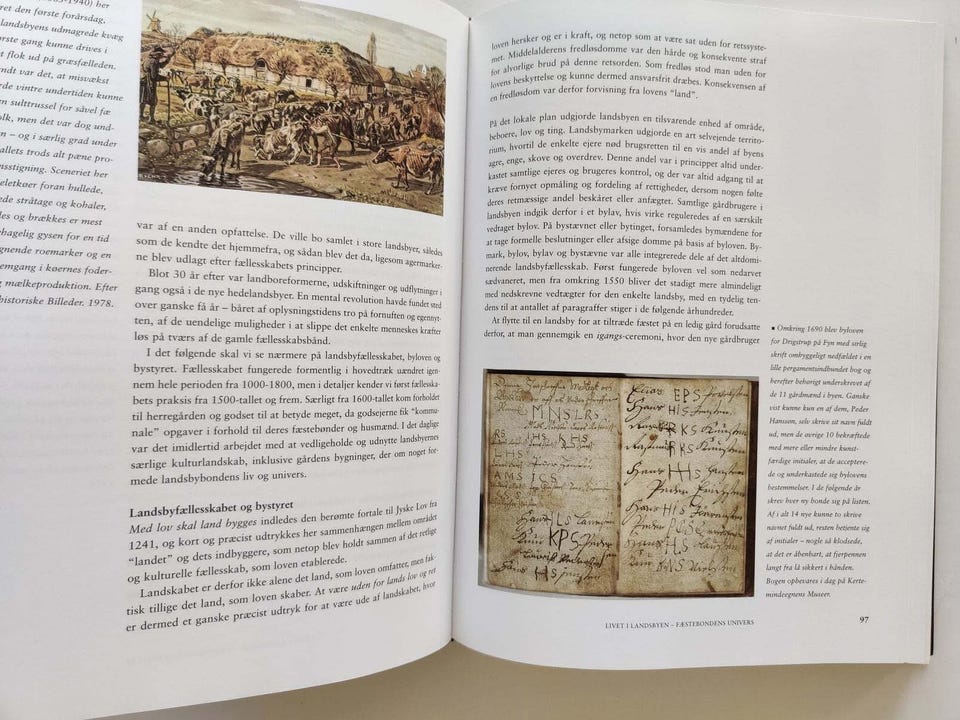 -1940) her
ret den første forårsdag,
landsbyens udmagrede kvæg
rste gang kunne drives i
flok ud på græsfælleden.
ndt var det, at misvækst
rde vintre undertiden kunne
n sulttrussel for såvel fæ
olk, men det var dog und-
n – og i særlig grad under
allets trods alt pæne pro-
msstigning. Sceneriet her
eletkøer foran hullede,
ede stråtage og kohaler,
les og brækkes er mest
ehagelig gysen for en tid
gnende roemarker og en
emgang i køernes foder-
mælkeproduktion. Efter
historiske Billeder. 1978.
var af en anden opfattelse. De ville bo samlet i store landsbyer, således
som de kendte det hjemmefra, og sådan blev det da, ligesom agermarker-
ne blev udlagt efter fællesskabets principper.
Blot 30 år efter var landboreformerne, udskiftninger og udflytninger i
gang også i de nye hedelandsbyer. En mental revolution havde fundet sted
over ganske få år – båret af oplysningstidens tro på fornuften og egennyt-
ten, af de uendelige muligheder i at slippe det enkelte menneskes kræfter
løs på tværs af de gamle fællesskabsbånd.
I det følgende skal vi se nærmere på landsbyfællesskabet, byloven og
bystyret. Fællesskabet fungerede formentlig i hovedtræk uændret igen-
nem hele perioden fra 1000-1800, men i detaljer kender vi først fællesska-
bets praksis fra 1500-tallet og frem. Særligt fra 1600-tallet kom forholdet
til herregården og godset til at betyde meget, da godsejerne fik “kommu-
nale” opgaver i forhold til deres fæstebønder og husmænd. I det daglige
var det imidlertid arbejdet med at vedligeholde og udnytte landsbyernes
særlige kulturlandskab, inklusive gårdens bygninger, der om noget for-
mede landsbybondens liv og univers.
Landsbyfællesskabet og bystyret
Med lov skal land bygges indledes den berømte fortale til Jyske Lov fra
1241, og kort og præcist udtrykkes her sammenhængen mellem området
“landet” og dets indbyggere, som netop blev holdt sammen af det retlige
og kulturelle fællesskab, som loven etablerede.
Landskabet er derfor ikke alene det land, som loven omfatter, men fak-
tisk tillige det land, som loven skaber. At være uden for lands lov og ret
er dermed et ganske præcist udtryk for at være ude af landskabet, hvor
loven hersker og er i kraft, og netop som at være sat uden for retssyste-
met. Middelalderens fredløsdomme var den hårde og konsekvente straf
for alvorlige brud på denne retsorden. Som fredløs stod man uden for
lovens beskyttelse og kunne dermed ansvarsfrit dræbes. Konsekvensen af
en fredløsdom var derfor forvisning fra lovens “land”.
På det lokale plan udgjorde landsbyen en tilsvarende enhed af område,
beboere, lov og ting. Landsbymarken udgjorde en art selvejende territo-
rium, hvortil de enkelte ejere nød brugsretten til en vis andel af byens
agre, enge, skove og overdrev. Denne andel var i princippet altid under-
kastet samtlige ejeres og brugeres kontrol, og der var altid adgang til at
kræve fornyet opmåling og fordeling af rettigheder, dersom nogen følte
deres retmæssige andel beskåret eller anfægtet. Samtlige gårdbrugere i
landsbyen indgik derfor i et bylav, hvis virke reguleredes af en særskilt
vedtaget bylov. På bystævnet eller bytinget, forsamledes bymændene for
at tage formelle beslutninger eller afsige domme på basis af byloven. By-
mark, bylov, bylav og bystævne var alle integrerede dele af det altdomi-
nerende landsbyfællesskab. Først fungerede byloven vel som nedarvet
sædvaneret, men fra omkring 1550 bliver det stadig mere almindeligt
med nedskrevne vedtægter for den enkelte landsby, med en tydelig ten-
dens til at antallet af paragraffer stiger i de følgende århundreder.
At flytte til en landsby for at tiltræde fæstet på en ledig gård forudsatte
derfor, at man gennemgik en igangs-ceremoni, hvor den nye gårdbruger
▪ Omkring 1690 blev byloven
for Drigstrup på Fyn med sirlig
skrift omhyggeligt nedfældet i en
lille pergamentsindbundet bog og
herefter behørigt underskrevet af
de 11 gårdmænd i byen. Ganske
vist kunne kun en af dem, Peder
Hanssøn, selv skrive sit navn fuldt
ud, men de øvrige 10 bekræftede
med mere eller mindre kunst-
færdige initialer, at de accepterede
de og underkastede sig bylovens
bestemmelser. I de følgende år
skrev hver ny bonde sig på listen.
Af i alt 14 nye kunne to skrive
navnet fuldt ud, resten betjente sig
af initialer – nogle så klodsede,
at det er åbenbart, at fjerpennen
langt fra lå sikkert i hånden.
Bogen opbevares i dag på Kerte-
mindeegnens Museer.
MNSLRS
EPS
HIS
RKS
HS
AMS ICS
HIS
HLS
KPS
HIS
PCS
HIS
HS
BNS
LIVET I LANDSBYEN – FÆSTEBONDENS UNIVERS
97